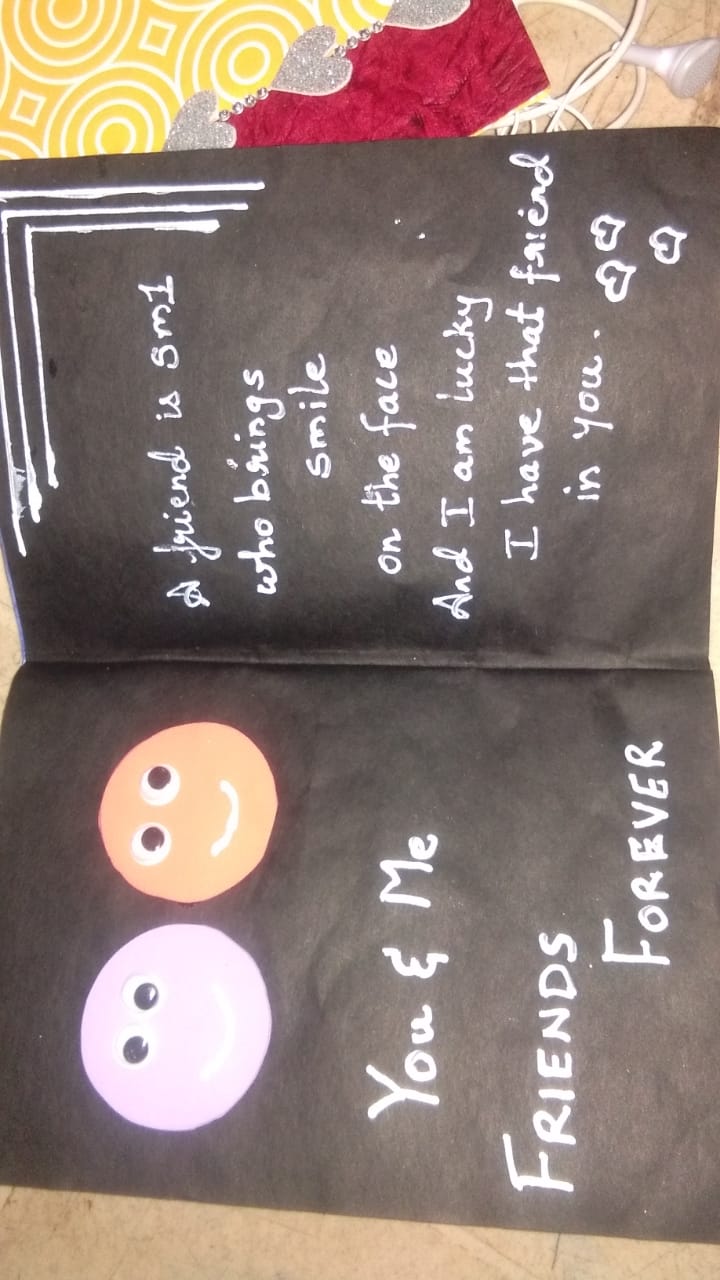 You & Me
FRIENDS
FOREVER
A friend is sm1
who brings
smile
on the face
And I am lucky
I have that friend
in you.